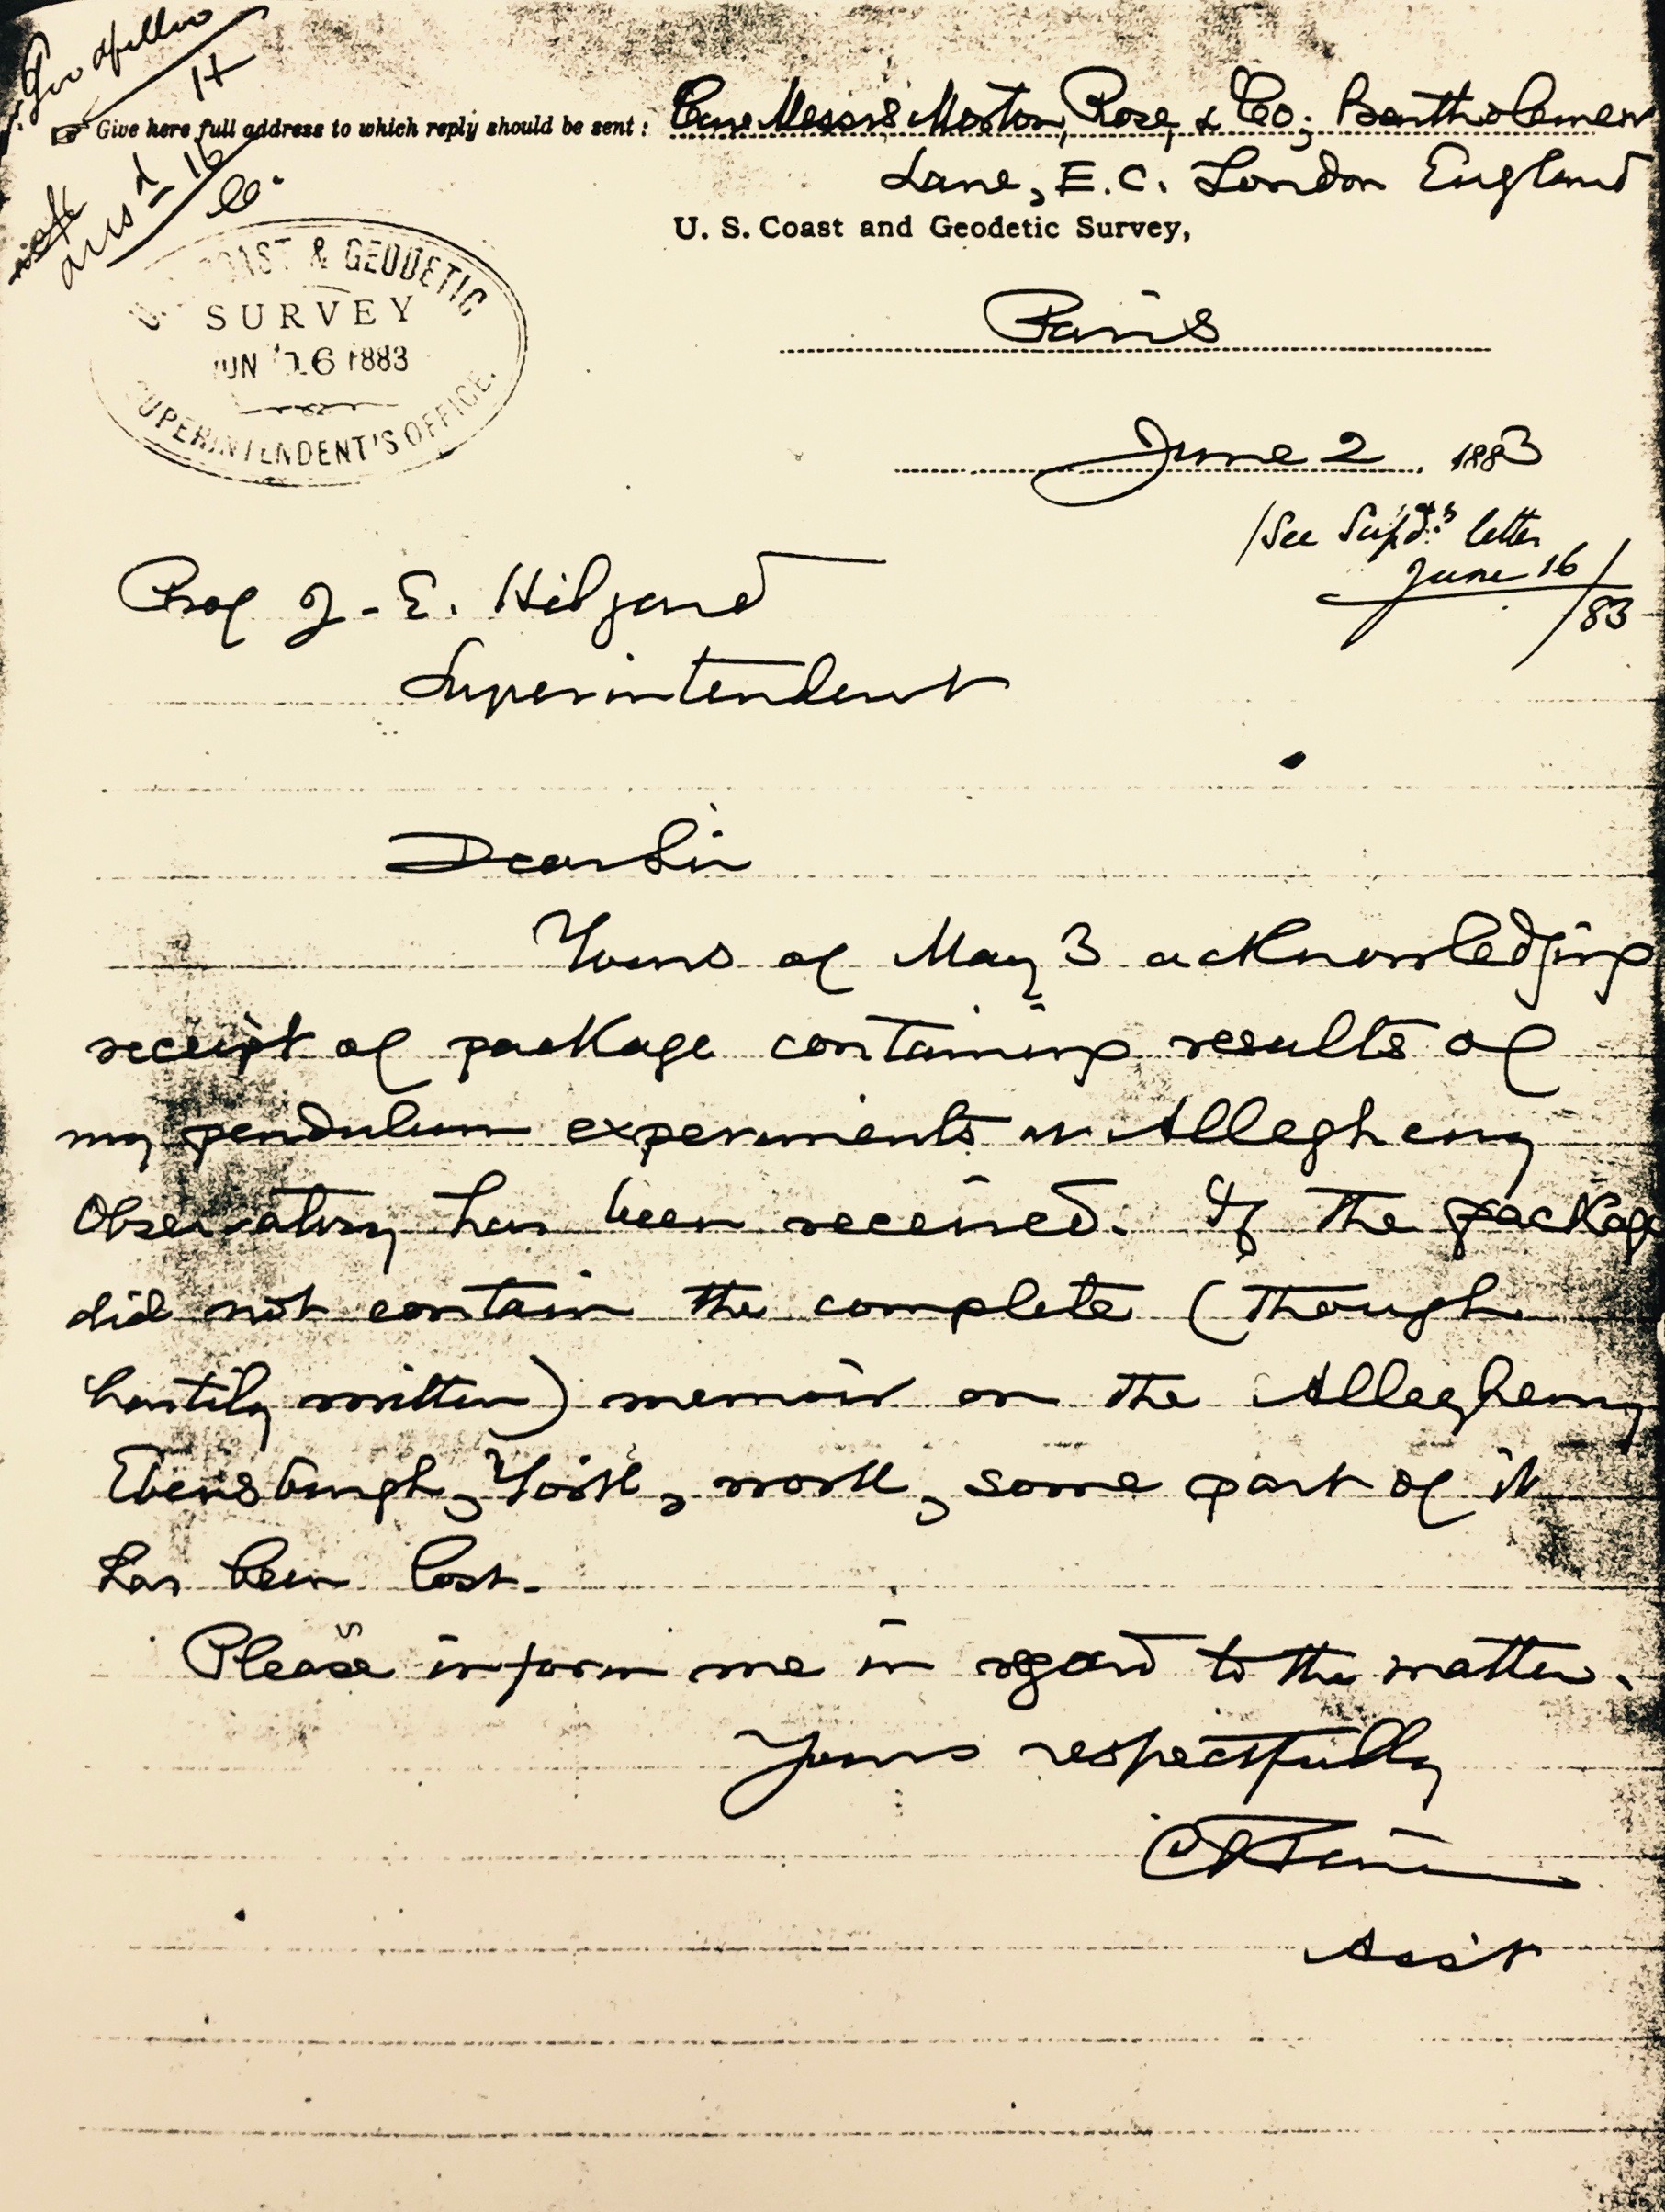 Goodfellow
H
Give here full address to which reply should be sent: Care Messrs Morton, Rose, & Co; Bartholemew
Lane, E.C. London England
ansd 16
U. S. Coast and Geodetic Survey,
U. S. COAST & GEODETIC
SURVEY
JUN 16 1883
SUPERINTENDENT'S OFFICE.
Paris
June 2. 1883
/See Supdt's letter
June 16/
/83
Prof J. E. Hilgard
Superintendent
Dear Sir
Yours of May 3 acknowledging
receipt of package containing results of
my pendulum experiments in Allegheny
Observatory has been received. If the package
did not contain the complete (though
hastily written) memoir on the Allegheny
Ebensburgh, York, work, some part of it
has been lost.
Please inform me in regard to the matter.
Yours respectfully
CS Peirce
Assit